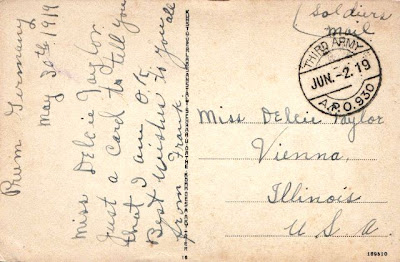 Pruem Germany
May 30th 1919
Miss Delcie Taylor
Just a card to tell you
that I am O.K.
Best wishes to you all
from Frank
(Soldiers
Mail
THIRD ARMY
JUN.-2.19
A.P.O.930
Miss Delcie Taylor
Vienna,
Illinois
U S A.
18
169510